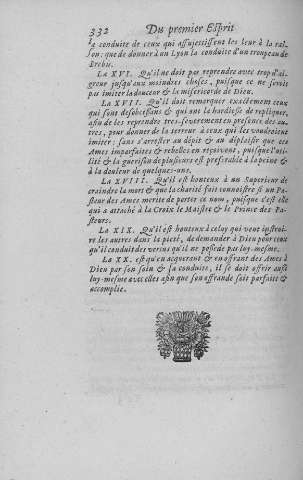 332 Du premier Esprit
la conduite de ceux qui assujettissent les leur à la rai-
son: que de donner à un Lyon la conduite d'un troupeau de
Brebis.
La XVI. Qu'il ne doit pas reprendre avec trop d'ai-
greur jusqu'aux moindres choses, puisque ce ne seroit
pas imiter la douceur & la misericorde de Dieu.
La XVII. Qu'il doit remarquer exactement ceux
qui sont desobeïssans & qui ont la hardiesse de repliquer,
afin de les reprendre tres-severement en presence des au-
tres, pour donner de la terreur à ceux qui les voudroient
imiter: sans s'arrester au dépit & au déplaisir que ces
Ames imparfaites & rebelles en reçoivent, puisque l'uti-
lité & la guerison de plusieurs est preferable à la peine &
à la douleur de quelques-uns.
La XVIII. Qu'il est honteux à un Superieur de
craindre la mort & que la charité fait connoistre si un Pa-
steur des Ames merite de porter ce nom, puisque c'est elle
qui a attaché à la Croix le Maistre & le Prince des Pa-
steurs.
La XIX. Qu'il est honteux à celuy qui veut instrui-
re les autres dans la pieté, de demander à Dieu pour ceux
qu'il conduit des vertus qu'il ne possede pas luy-mesme.
La XX. est qu'en acquerant & en offrant des Ames à
Dieu par son soin & sa conduite, il se doit offrir aussi
luy-mesme avec elles afin que son offrande soit parfaite &
accomplie.